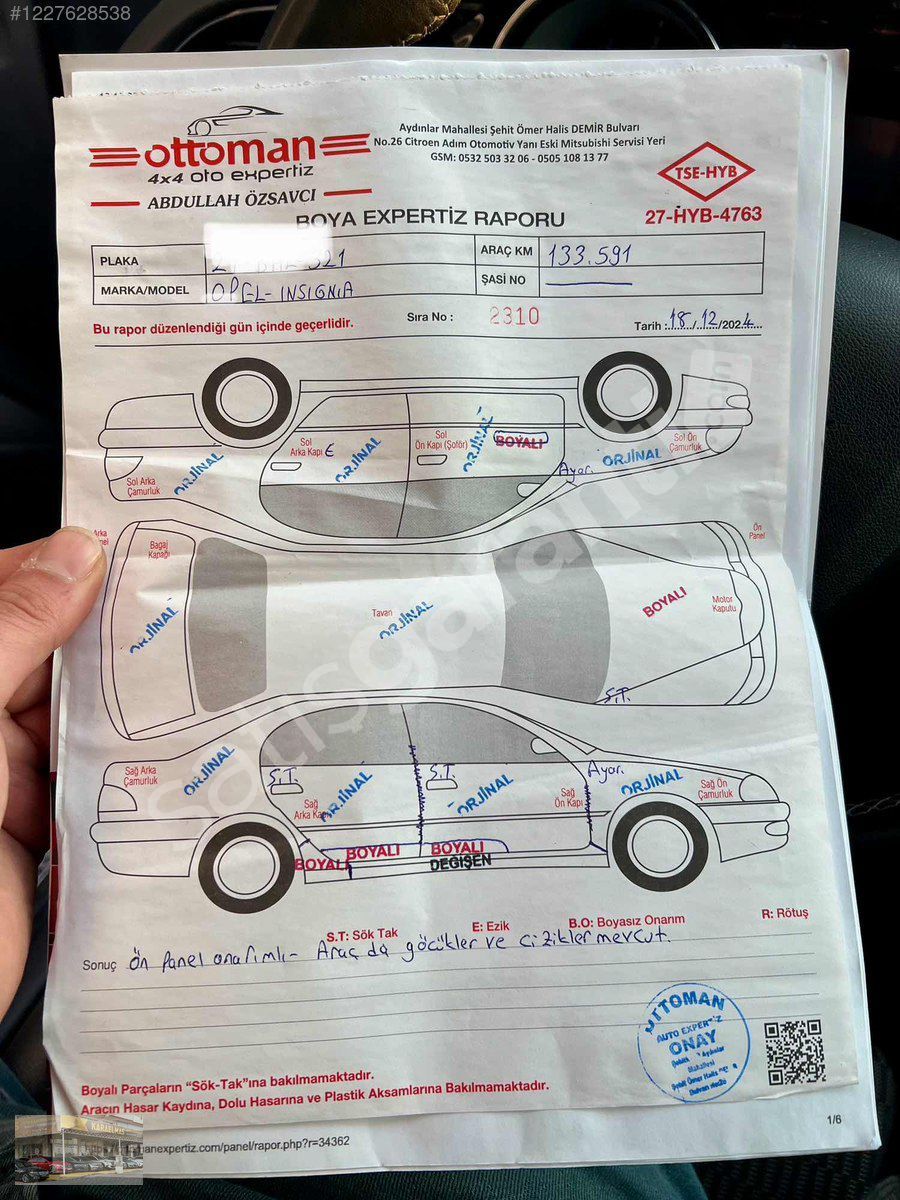 #1227628538
ottoman
4x4 oto expertiz
ABDULLAH ÖZSAVCI
Aydınlar Mahallesi Şehit Ömer Halis DEMİR Bulvarı
No.26 Citroen Adım Otomotiv Yanı Eski Mitsubishi Servisi Yeri
GSM: 0532 503 32 06 - 0505 108 13 77
TSE-HYB
27-HYB-4763
BOYA EXPERTİZ RAPORU
PLAKA
ARAÇ KM 133.591
MARKA/MODEL OPEL-INSIGNIA
ŞASİ NO
Bu rapor düzenlendiği gün içinde geçerlidir.
Sıra No : 2310
Tarih : 18/12/2024
Sol Arka Çamurluk
ORJİNAL
Sol Arka Kapı E
ORJİNAL
Sol Ön Kapı (Şoför)
ORJİNAL
BOYALI
Ayar.
ORJİNAL
Sol Ön Çamurluk
Bagaj Kapağı
ORJİNAL
Tavan
ORJİNAL
BOYALI
Motor Kaputu
Ön Panel
S.T.
Sağ Arka Çamurluk
ORJİNAL
S.T.
Sağ Arka Kapı
ORJİNAL
S.T.
ORJİNAL
Sağ Ön Kapı
Ayar.
ORJİNAL
Sağ Ön Çamurluk
BOYALI
BOYALI
BOYALI
DEĞİŞEN
S.T: Sök Tak
E: Ezik
B.O: Boyasız Onarım
R: Rötuş
Sonuç Ön Panel onarımlı - Araç da göçükler ve çizikler mevcut.
OTTOMAN
AUTO EXPERTİZ
ONAY
Boyalı Parçaların “Sök-Tak”ına bakılmamaktadır.
Aracın Hasar Kaydına, Dolu Hasarına ve Plastik Aksamlarına Bakılmamaktadır.
1/6
manexpertiz.com/panel/rapor.php?r=34362
KARAELMAS